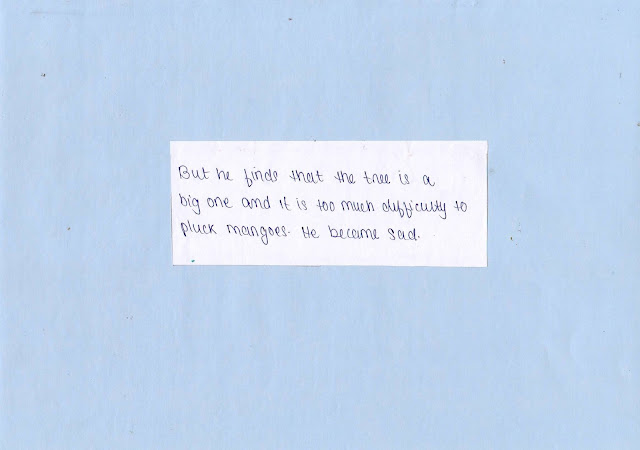 But he finds that the tree is a
big one and it is too much difficulty to
pluck mangoes. He became sad.